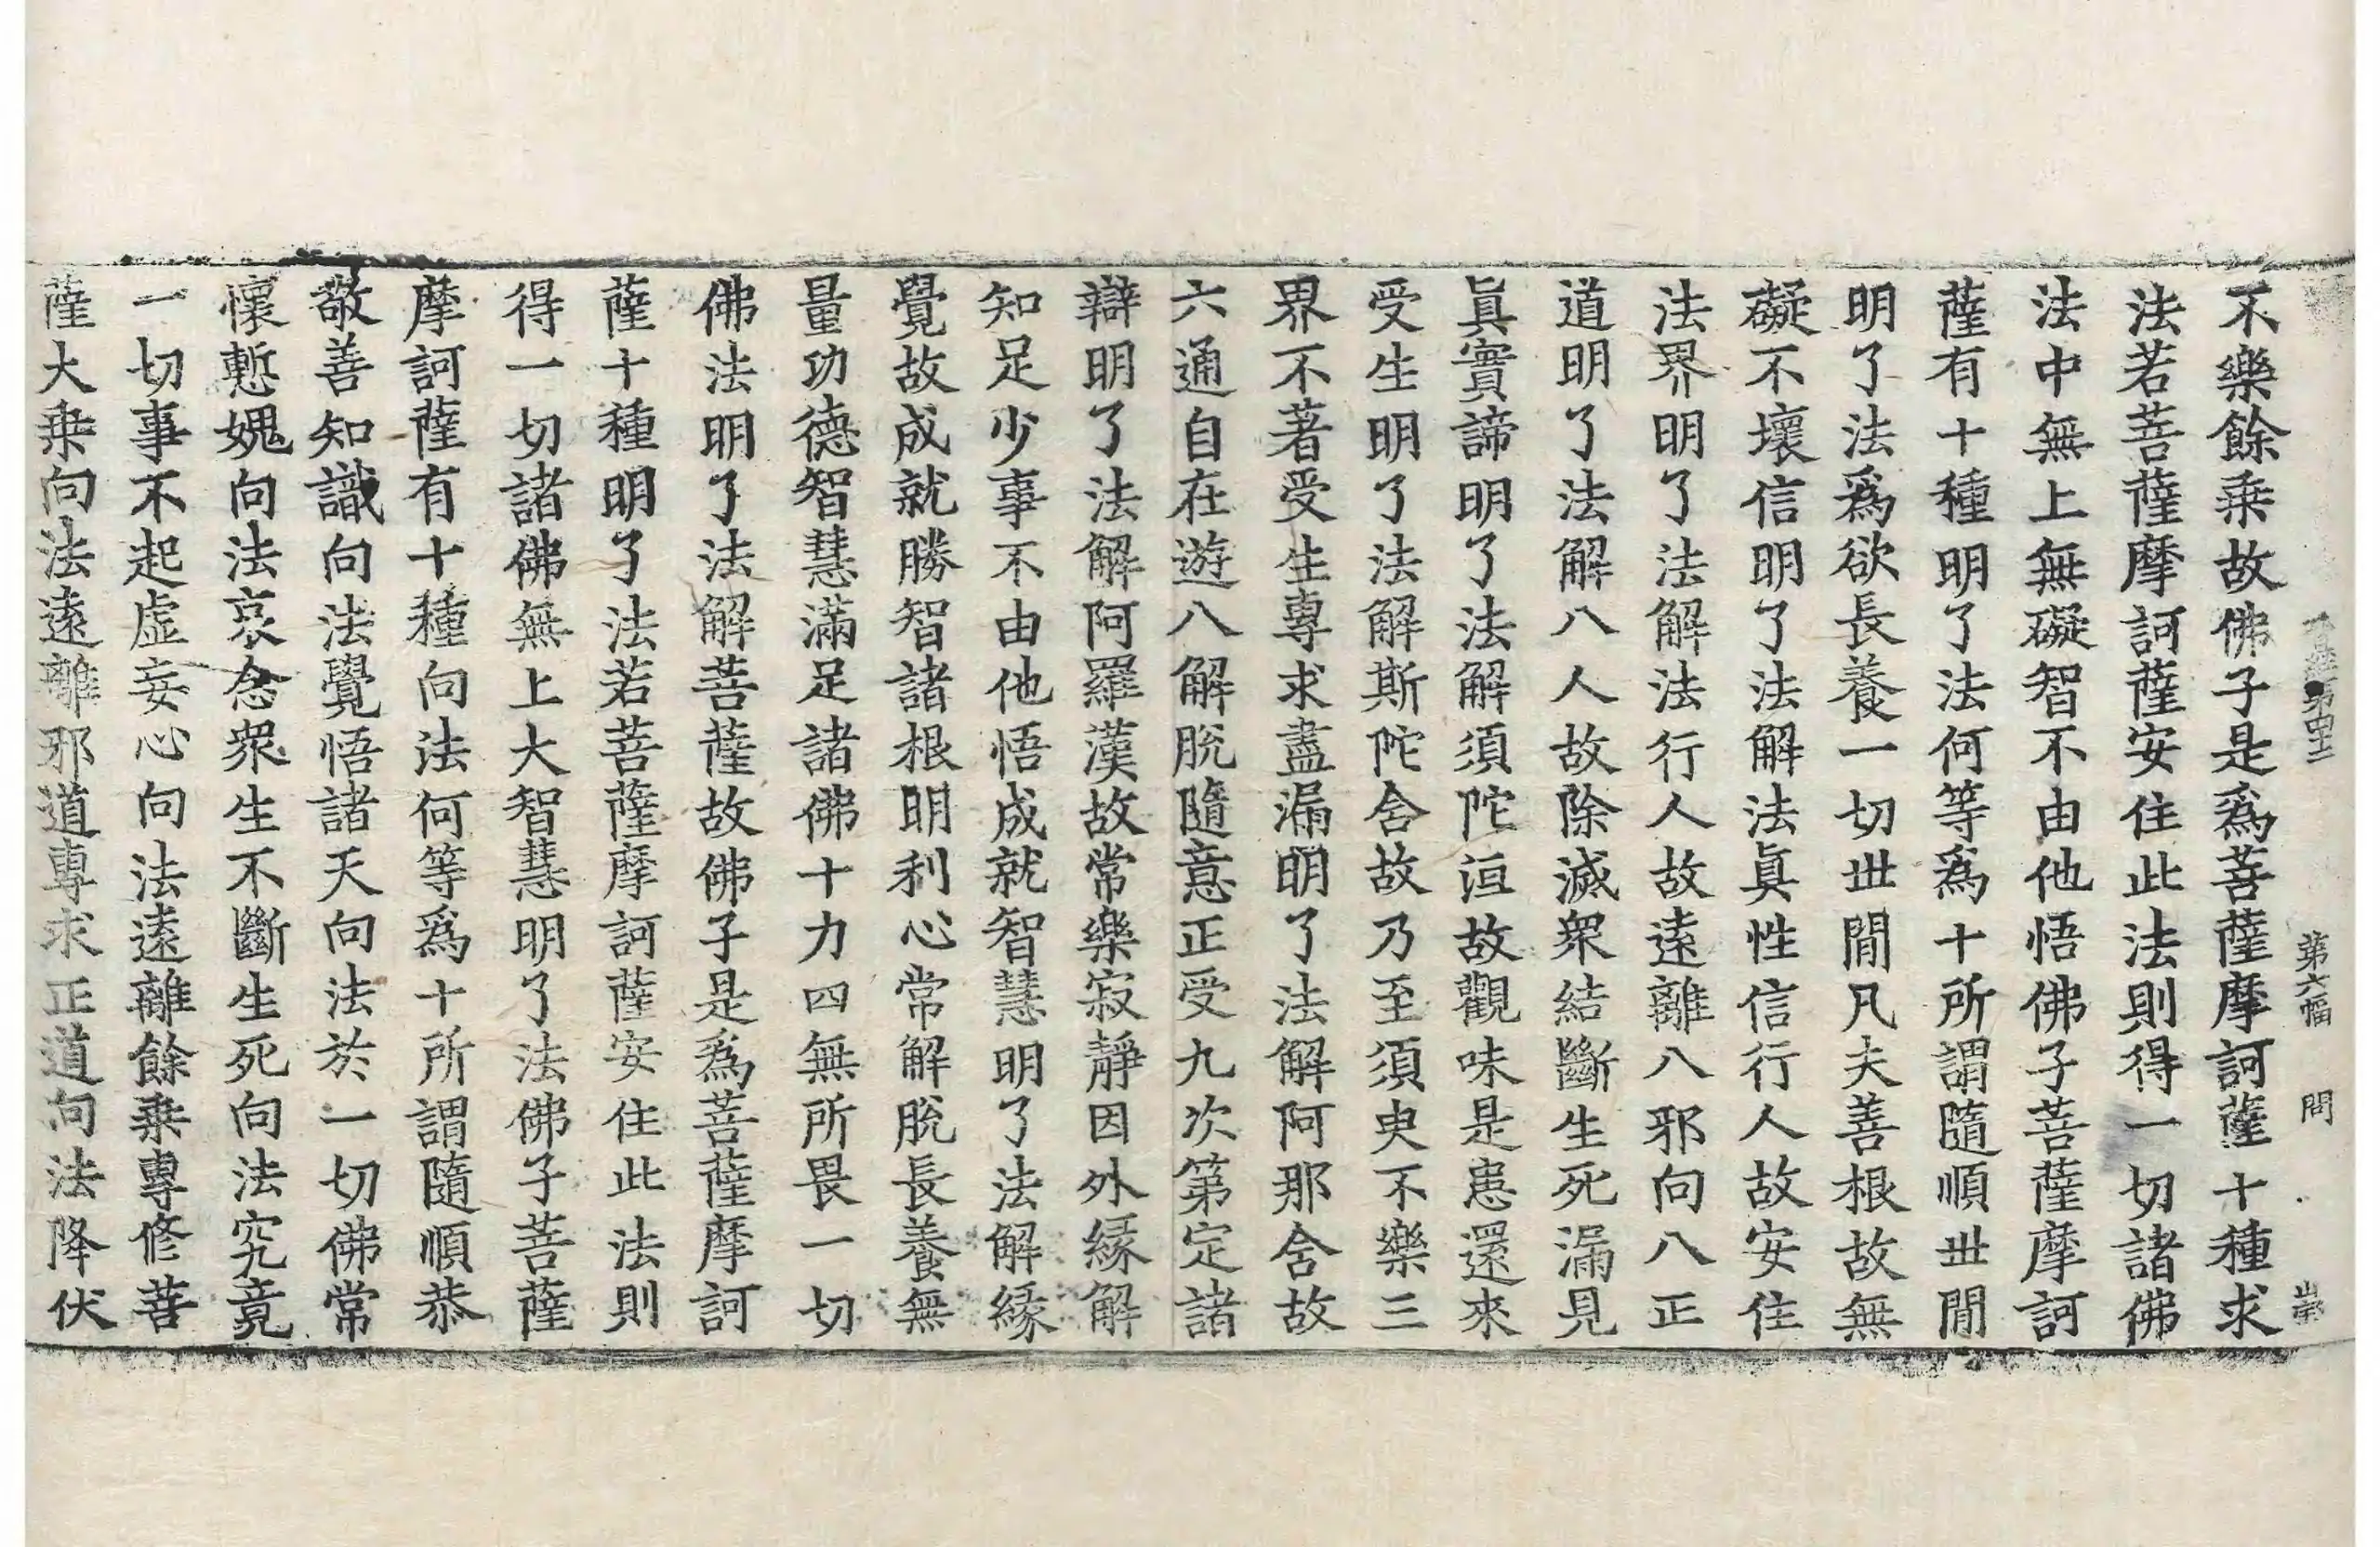 第六幅 問
不樂餘乗故佛子是爲菩薩摩訶薩十種求
法若菩薩摩訶薩安住此法則得一切諸佛
法中無上無礙智不由他悟佛子菩薩摩訶
薩有十種明了法何等爲十所謂隨順世閒
明了法爲欲長養一切世閒凡夫善根故無
礙不壞信明了法解法真性信行人故安住
法界明了法解法行人故遠離八邪向八正
道明了法解八人故除滅衆結斷生死漏見
眞實諦明了法解須陀洹故觀味是患還來
受生明了法解斯陀含故乃至須臾不樂三
界不著受生專求盡漏明了法解阿那含故
六通自在遊八解脫隨意正受九次第定諸
辯明了法解阿羅漢故常樂寂靜因外緣解
知足少事不由他悟成就智慧明了法解緣
覺故成就勝智諸根明利心常解脫長養無
量功德智慧滿足諸佛十力四無所畏一切
佛法明了法解菩薩故佛子是爲菩薩摩訶
薩十種明了法若菩薩摩訶薩安住此法則
得一切諸佛無上大智慧明了法佛子菩薩
摩訶薩有十種向法何等爲十所謂隨順恭
敬善知識向法覺悟諸天向法於一切佛常
懷慙媿向法哀念衆生不斷生死向法究竟
一切事不起虛妄心向法遠離餘乗專修菩
薩大乗向法遠離邪道專求正道向法降伏